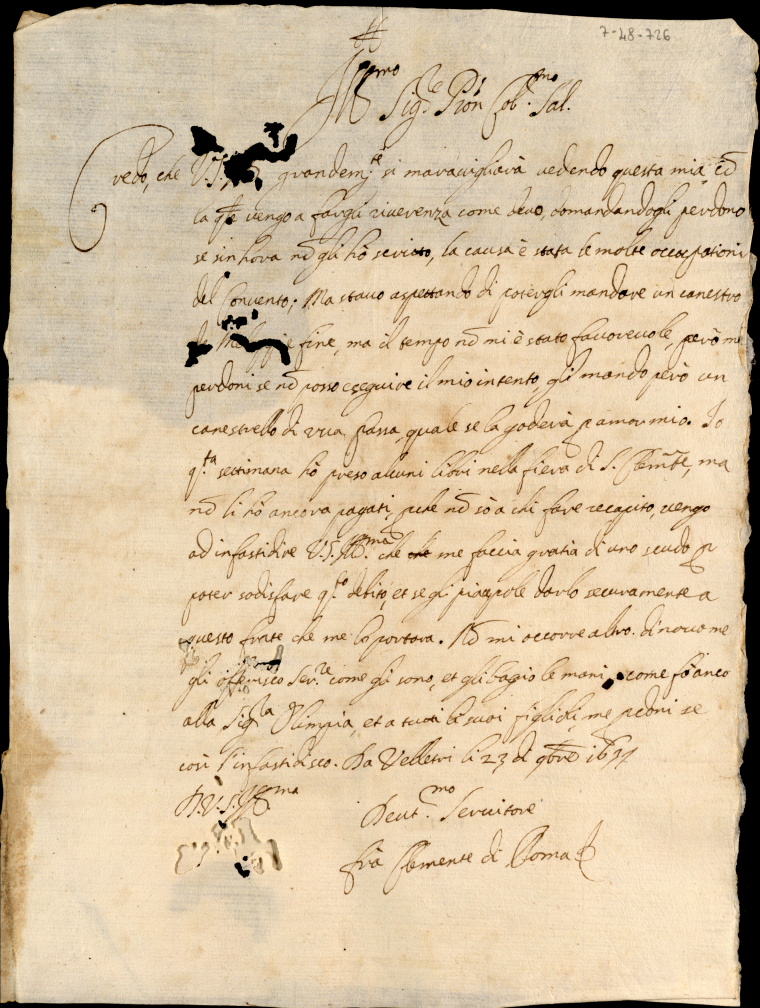 7-48-726
Ill.mo Sig.re Pron Col.mo Sal.
Credo, che V.S. grandem.te si maravigliarà vedendo questa mia, cō
la q̄le vengo a fargli riverenza come devo, domandandogli perdono
se sin hora nō gli hò scritto, la causa è stata le molte occupationi
del Convento; Ma stavo aspettando di potergli mandare un canestro
fine, ma il tempo nō mi è stato favorevole, però me
perdoni se nō posso eseguire il mio intento, gli mando però un
canestrello di uva passa, quale se la goderà p amor mio. Io
q.ta settimana hò preso alcuni libri nella fiera di S. Clem.te, ma
nō li hò ancora pagati, pche nō sò a chi fare recapito, vengo
ad infastidire V.S. Ill.ma che me faccia gratia di uno scudo p
poter sodisfare q.to debito, et se gli piace pole darlo securamente a
questo frate che me lo portara. Nō mi occorre altro. di novo me
gli offerisco Ser.re come gli sono, et gli bagio le mani, come fò anco
alla Sig.ra Olimpia, et a tutti li suoi figlioli, me pdoni se
così l'infastidisco. Da Velletri li 23 di 9bre 1657
D. V. S. Ill.ma
Devot.mo Servitore
frà Clemente di Roma